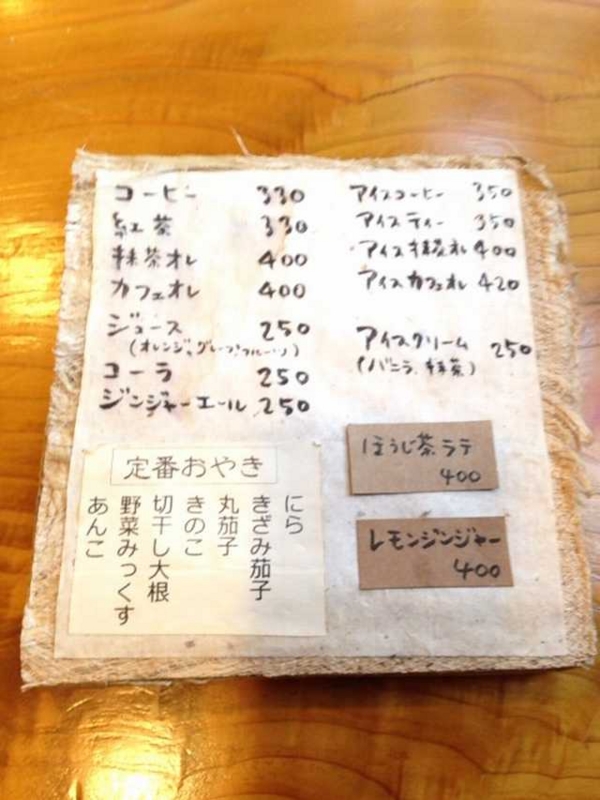 コーヒー 330
紅茶 330
抹茶オレ 400
カフェオレ 400
ジュース 250
(オレンジ、グレープフルーツ)
コーラ 250
ジンジャーエール 250
アイスコーヒー 350
アイスティー 350
アイス抹茶オレ 400
アイスカフェオレ 420
アイスクリーム 250
(バニラ、抹茶)
ほうじ茶ラテ
400
レモンジンジャー
400
定番おやき
にら
きざみ茄子
丸茄子
きのこ
切干し大根
野菜みっくす
あんこ